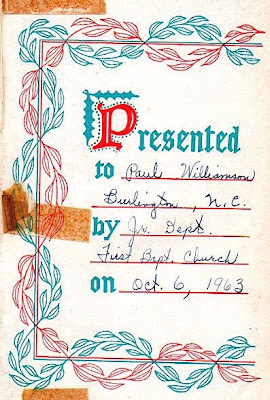 Presented
to Paul Williamson
Burlington, N.C.
by Jr. Dept.
First Bapt. Church
on Oct. 6, 1963